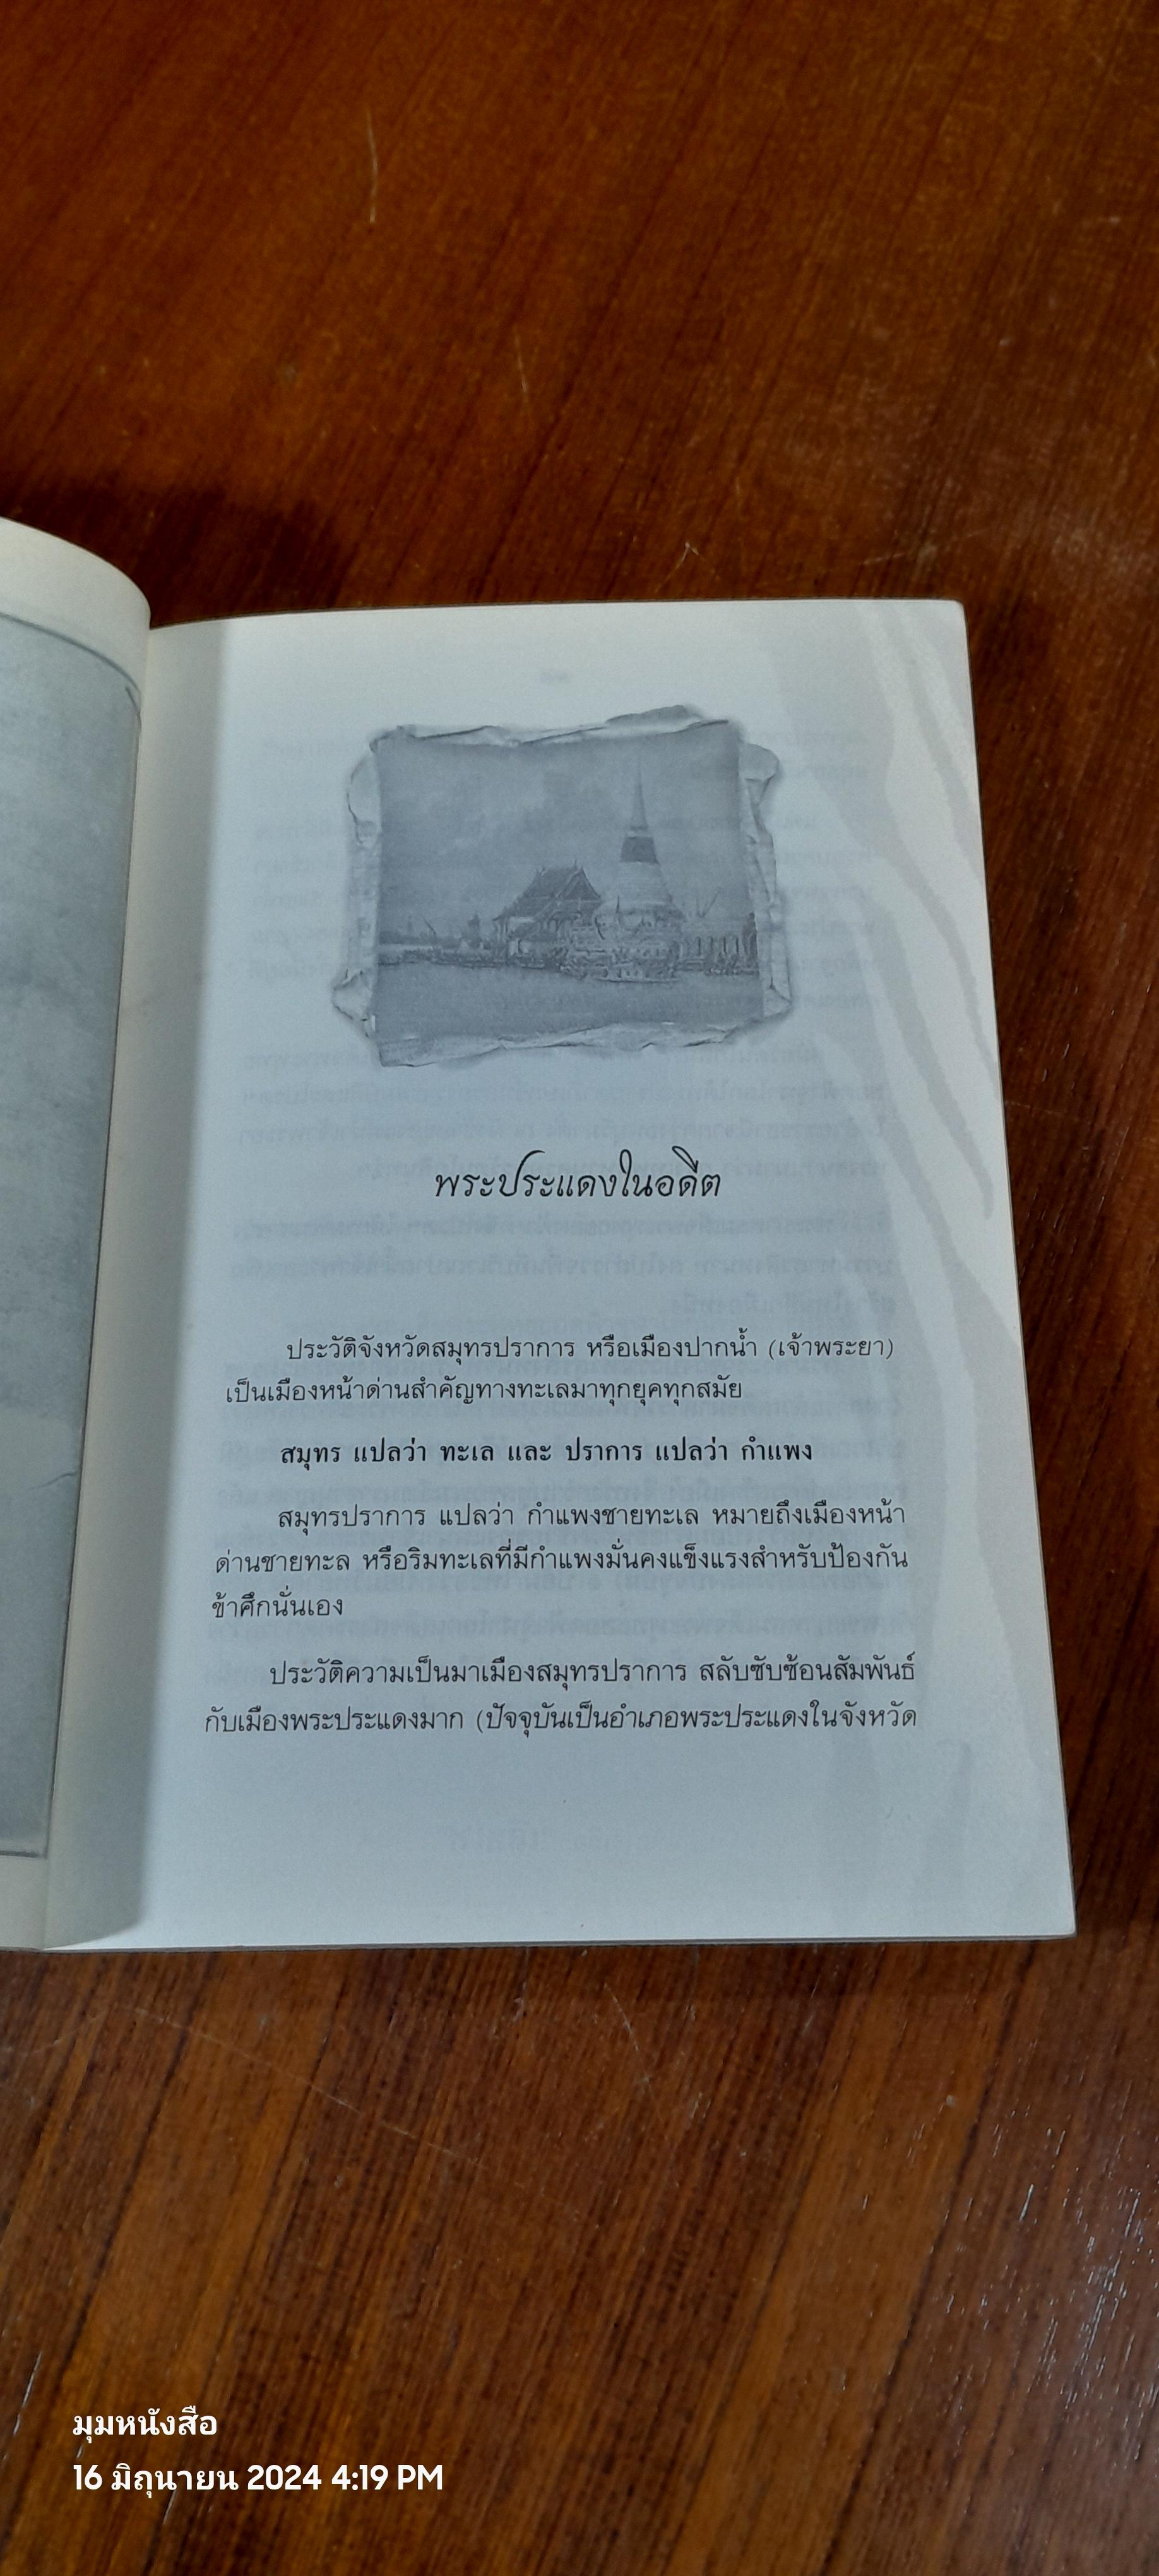 พระประแดงในอดีต
ประวัติจังหวัดสมุทรปราการ หรือเมืองปากน้ำ (เจ้าพระยา)
เป็นเมืองหน้าด่านสำคัญทางทะเลมาทุกยุคทุกสมัย
สมุทร แปลว่า ทะเล และ ปราการ แปลว่า กำแพง
สมุทรปราการ แปลว่า กำแพงชายทะเล หมายถึงเมืองหน้า
ด่านชายทะล หรือริมทะเลที่มีกำแพงมั่นคงแข็งแรงสำหรับป้องกัน
ข้าศึกนั่นเอง
ประวัติความเป็นมาเมืองสมุทรปราการ สลับซับซ้อนสัมพันธ์
กับเมืองพระประแดงมาก (ปัจจุบันเป็นอำเภอพระประแดงในจังหวัด
มุมหนังสือ
16 มิถุนายน 2024 4:19 PM